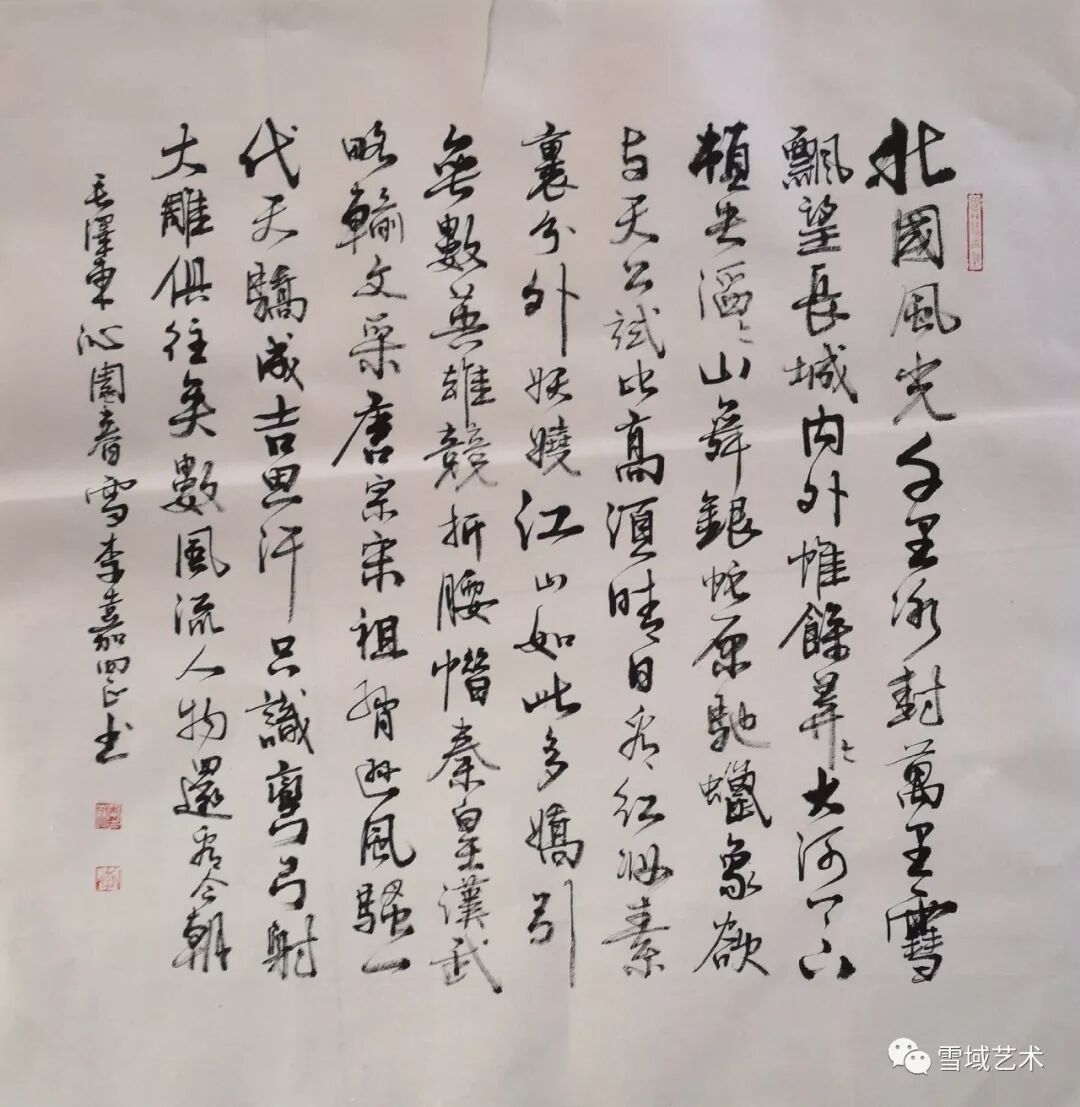 北國風光千里冰封萬里雪
飄望長城内外惟餘莽〻大河上下
頓失滔〻山舞銀蛇原馳蠟象欲
与天公試比高須晴日看红妝素
裹分外妖嬈江山如此多嬌引
無數英雄競折腰惜秦皇漢武
略輸文采唐宗宋祖稍遜風騷一
代天驕成吉思汗只識彎弓射
大雕俱往矣數風流人物還看今朝
毛澤東沁園春雪李嘉书
雪域艺术